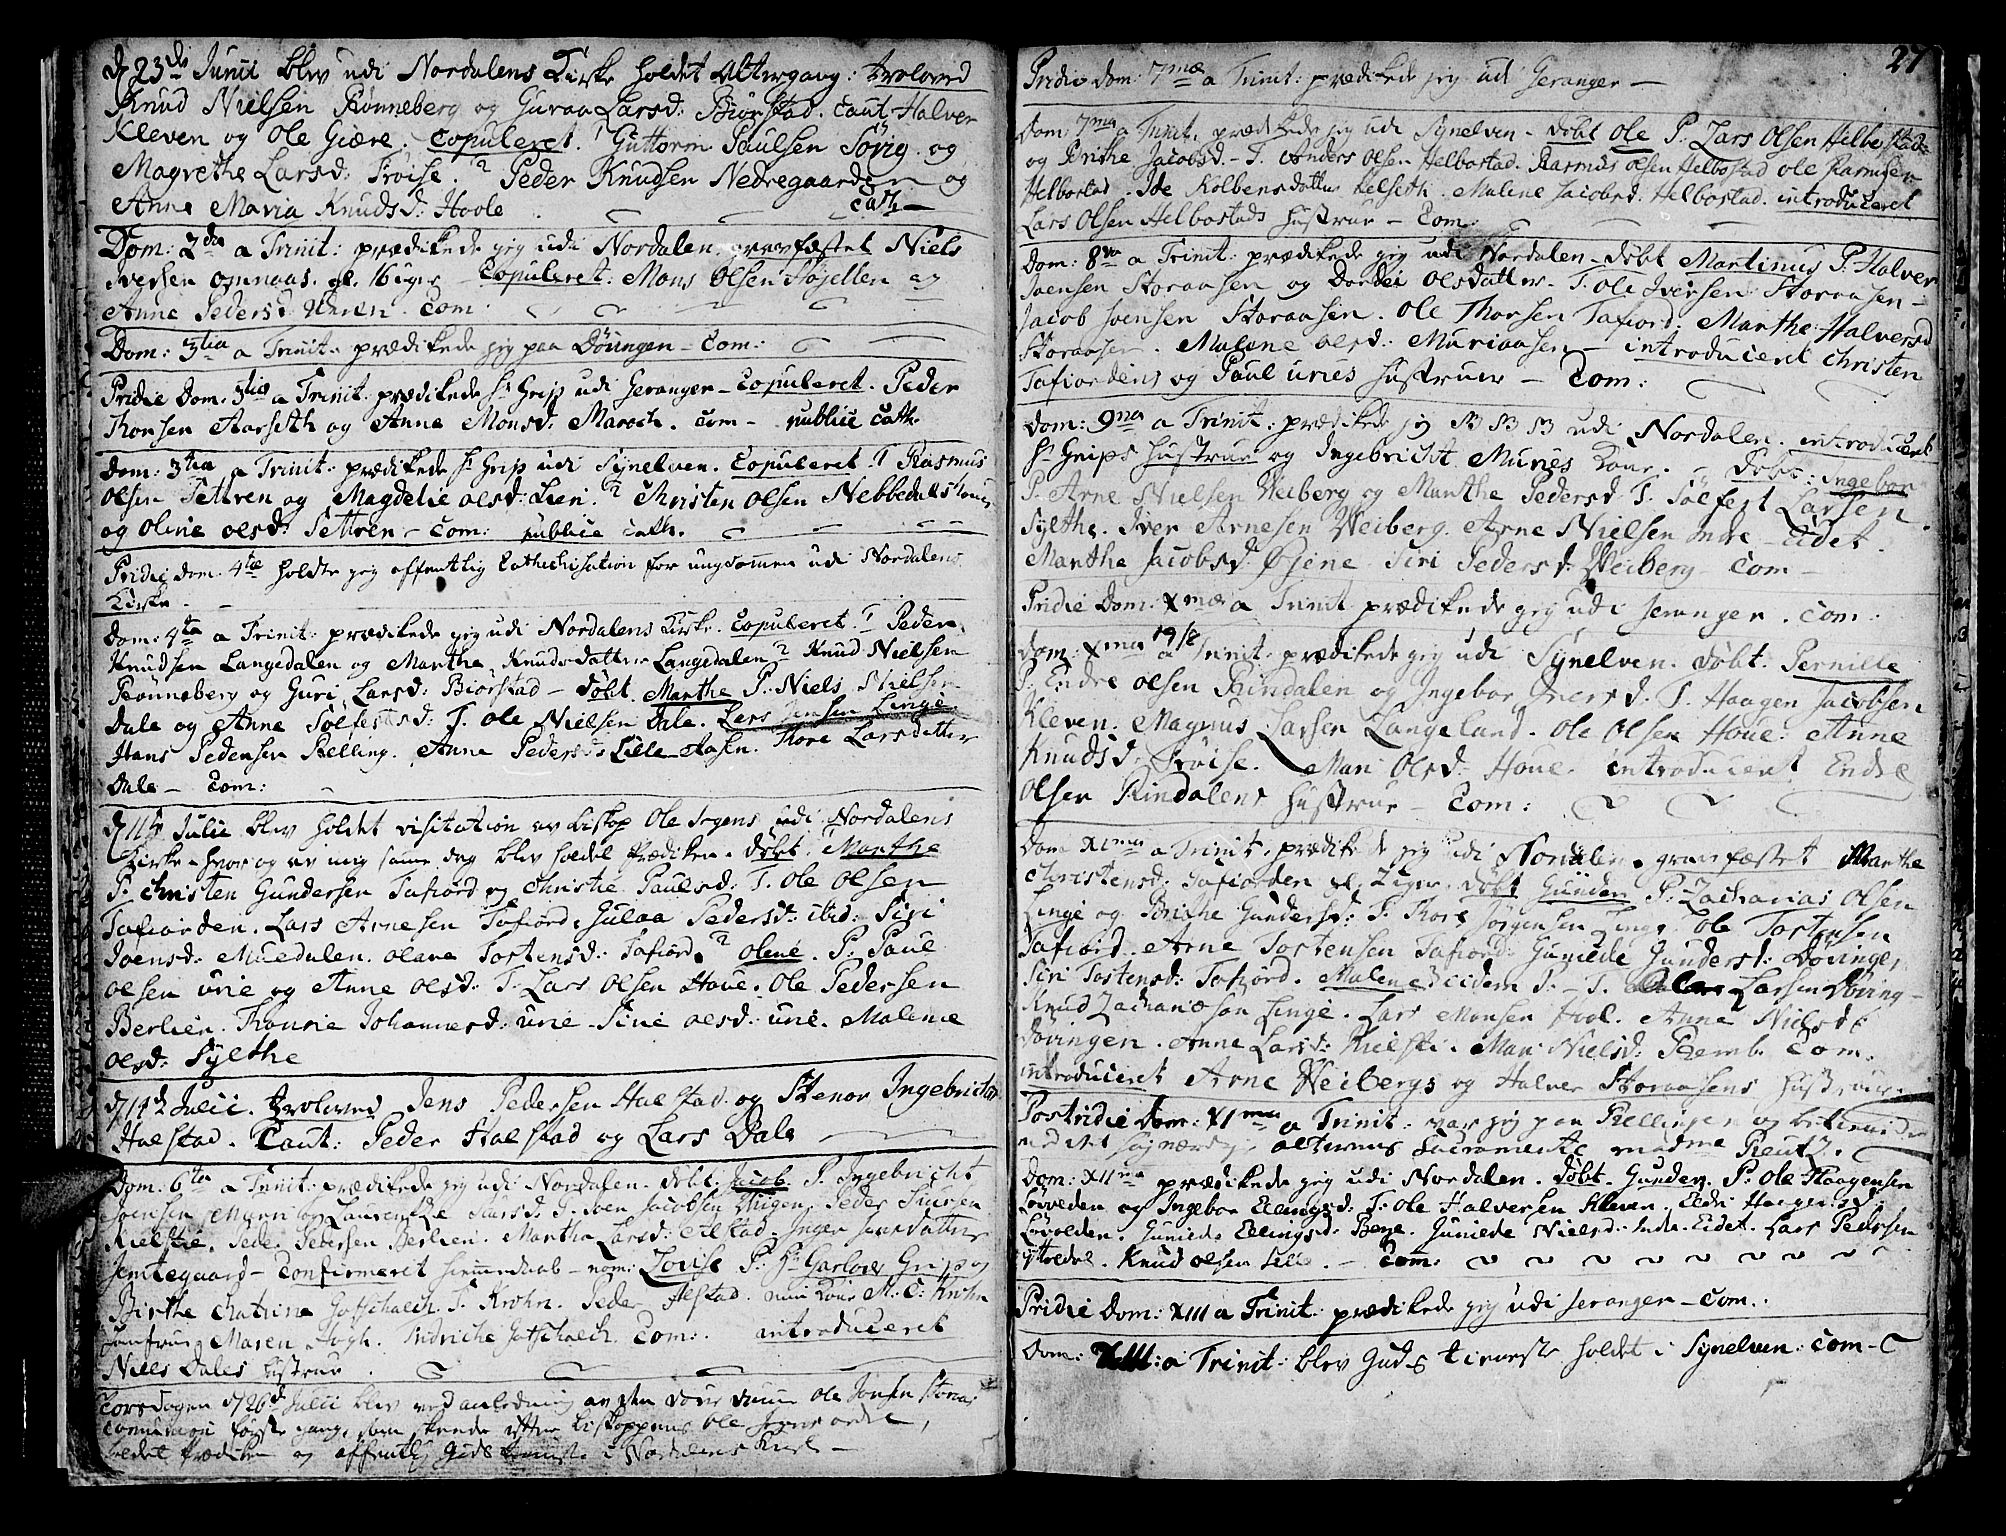 d 23de Junii blev udi Nordalens Kirke holdet Altergang: troloved
Knud Nielsen Rønneberg og Guraa Larsd: Biørstad. Caut: Halver
Kleven og Ole Giære. Copuleret. 1 Guttorm Paulsen Søvig og
Magrethe Larsd: Frøise. 2 Peder Knudsen Nedregaarden og
Anne Maria Knudsd: Hoole. Cath
Dom: 2da a Trinit: prædikede jeg udi Nordalen. gravfæstet Niels
Iversen Omnaas. gl. 16 uger - Copuleret: Mons Olsen og
Anne Pedersd Uhren. Com:
Dom: 3tia a Trinit: prædikede jeg paa Døvingen - Com:
Pridie Dom: 3tiæ a Trinit: prædikede Hr Grip udi Geranger - Copuleret. Peder
Thorsen Aarseth og Anne Monsd: Maroch. com - publice cath.
Dom: 3tia a Trinit: prædikede Hr Grip udi Synelven. Copuleret. 1 Rasmus
Olsen Tettren og Magdelie olsd: Lien. 2 Christen Olsen Nebbedals
og Oline olsd: Tettren - Com: publice cath.
Pridie dom. 4tæ holdte jeg offentlig Cathechisation for ungdommen udi Nordalens
Kirke.
Dom: 4ta a Trinit: prædikede jeg udi Nordalens Kirke. Copuleret. 1 Peder
Knudsen Langedalen og Marthe Knudsdatter Langedalen 2 Knud Nielsen
Rønneberg og Guri Larsd: Biørstad - døbt. Marthe P. Niels Nielsen
Dale og Anne Solfestsd: T. Ole Nielsen Dale. Lars Jensen Linge.
Hans Pedersen Relling. Anne Pedersd: Lille Aasen. Thore Larsdatter
Dale - Com:
d 11te Julii blev holdet visitation av biskop Ole Irgens udi Nordalens
Kirke - hvor og av mig samme dag blev holdet Prædiken. døbt. 1 Marthe
P. Christen Gundersen Tafiord og Christie Paulsd: T. Ole Olsen
Tafiorden. Lars Arnesen Tafiord. Gulaa Pedersd: ibid: Siri
Joensd: Muldalen. Olave Tostensd: Tafiord. 2 Oline. P. Paul
Olsen Urie og Anne olsd: T. Lars Olsen Houe. Ole Pedersen
Berlien. Johannesd: Urie - olsd: Urie. Malene
olsd: Sylthe
d 14de Julii. trolovet Jens Pedersen Halstad og Stenor Ingebrictsd
Halstad. Caut: Peder Halstad og Lars Dale
Dom: 6ta a Trinit: prædikede jeg udi Nordalen. døbt. Jacob. P. Ingebricht
Joensen Muri og Laurentze Larsd: T. Joen Jacobsen Peder
Rielstie. Peder Pedersen Berlien. Martha Larsd: Alstad. Inger datter
- Confirmeret hjemedaab - nom: Lovise P. Hr Garlov Grip og
Birthe Catrina Gotschalch T. Krohn. Peder Alstad. min Kone M. C. Krohn
Jomfrue Maren Fogh. Gotschalch. Com: introduceret
Niels Dales hustrue.
Torsdagen d 26de Julii blev ved anledning av den Ole Jonsen Storaas
Comunion første gang, Biskoppens Ole Irgens ordre,
holdet Prædiken og offentlig Guds tieneste i Nordalens Kirke -
27
Pridie Dom: 7mæ a Trinit: prædikede jeg udi Geranger -
Dom 7ma a Trinit. prædikede jeg udi Synelven - døbt Ole P. Lars Olsen Helbostad
og Brithe Jacobsd - T. Anders Olsen Helbostad. Rasmus Olsen Helbostad Ole Rasmusen
Helbostad. Ide Kolbensdatter Helseth. Malene Jacobsd. Helbostad. introduceret
Lars Olsen Helbostads hustrue - Com:
Dom: 8va a Trinit: prædikede jeg udi Nordalen - døbt Martinus P. Halver
Joensen Storaasen og Dordei Olsdatter - T. Ole Iversen Storaasen -
Jacob Joensen Storaasen. Ole Thorsen Tafiord. Marthe Halversd
Storaasen. Malene olsd: Muriaasen - introduceret Christen
Tafiordens og Paul Uries hustruer - Com:
Dom: 9na a Trinit: prædikede jeg udi Nordalen. introduceret
Hr Grips hustrue og Ingebricht Muries Kone. - Døbt: Ingebor
P. Arne Nielsen Weiberg og Marthe Pedersd T. Solfest Larsen
Sylthe. Iver Arnesen Weiberg. Arne Nielsen Indre - Eidet.
Marthe Jacobsd Øjene Siri Pedersd: Weiberg - Com -
Pridie Dom: Xmæ a Trinit prædikede jeg udi Geranger. Com:
Dom: Xma 19/8 a Trinit: prædikede jeg udi Synelven. døbt. Pernille
P. Endre Olsen Rindalen og Ingebor Iversd: T. Haagen Jacobsen
Kleven. Magnus Larsen Langeland. Ole Olsen Houe. Anne
Knudsd: Frøise. Mari Olsd: Houe. introduceret Endre
Olsen Rindalens hustrue - Com:
Dom XIma a Trinit. prædikede jeg udi Nordalen. gravfæstet Marthe
Christensd: Tafiorden gl. 2 uger. døbt Gunder P. Zacharias Olsen
Linge og Brithe Gundersd: T. Thore Jørgensen Linge. Ole Tostensen
Tafiord. Arne Tostensen Tafiord. Guniede Gundersd: Døvinge.
Siri Tostensd: Tafiord. Malene eidem P. - T. Larsen Døving -
Knud Zachariæsøn Linge. Lars Monsen Hool. Anne Nielsd:
Døvingen. Anne Larsd: Rielsti. Mari Nielsd: Remb. Com.
introduceret Arne Weibergs og Halver Storaasens hustruer
Postridie Dom: XIma a Trinit: var jeg paa Rellingen og betiente
med det alterens Sacramente madme Reutz.
Dom: XIIma prædikede jeg udi Nordalen. døbt. Gunder. P. Ole Haagensen
Løvolden og Ingebor Ellingsd: T. Ole Halversen Kleven. Eldri Haagensd
Løvolden. Guniede Ellingsd: Guniede Nielsd: Indre Eidet. Lars Pedersen
Yttredal. Knud Olsen Lille. - Com:
Pridie Dom: XIII a Trinit: prædikede jeg udi Geranger - Com.
Dom: XIII: a Trinit: blev Guds tieneste holdet i Synelven: com -